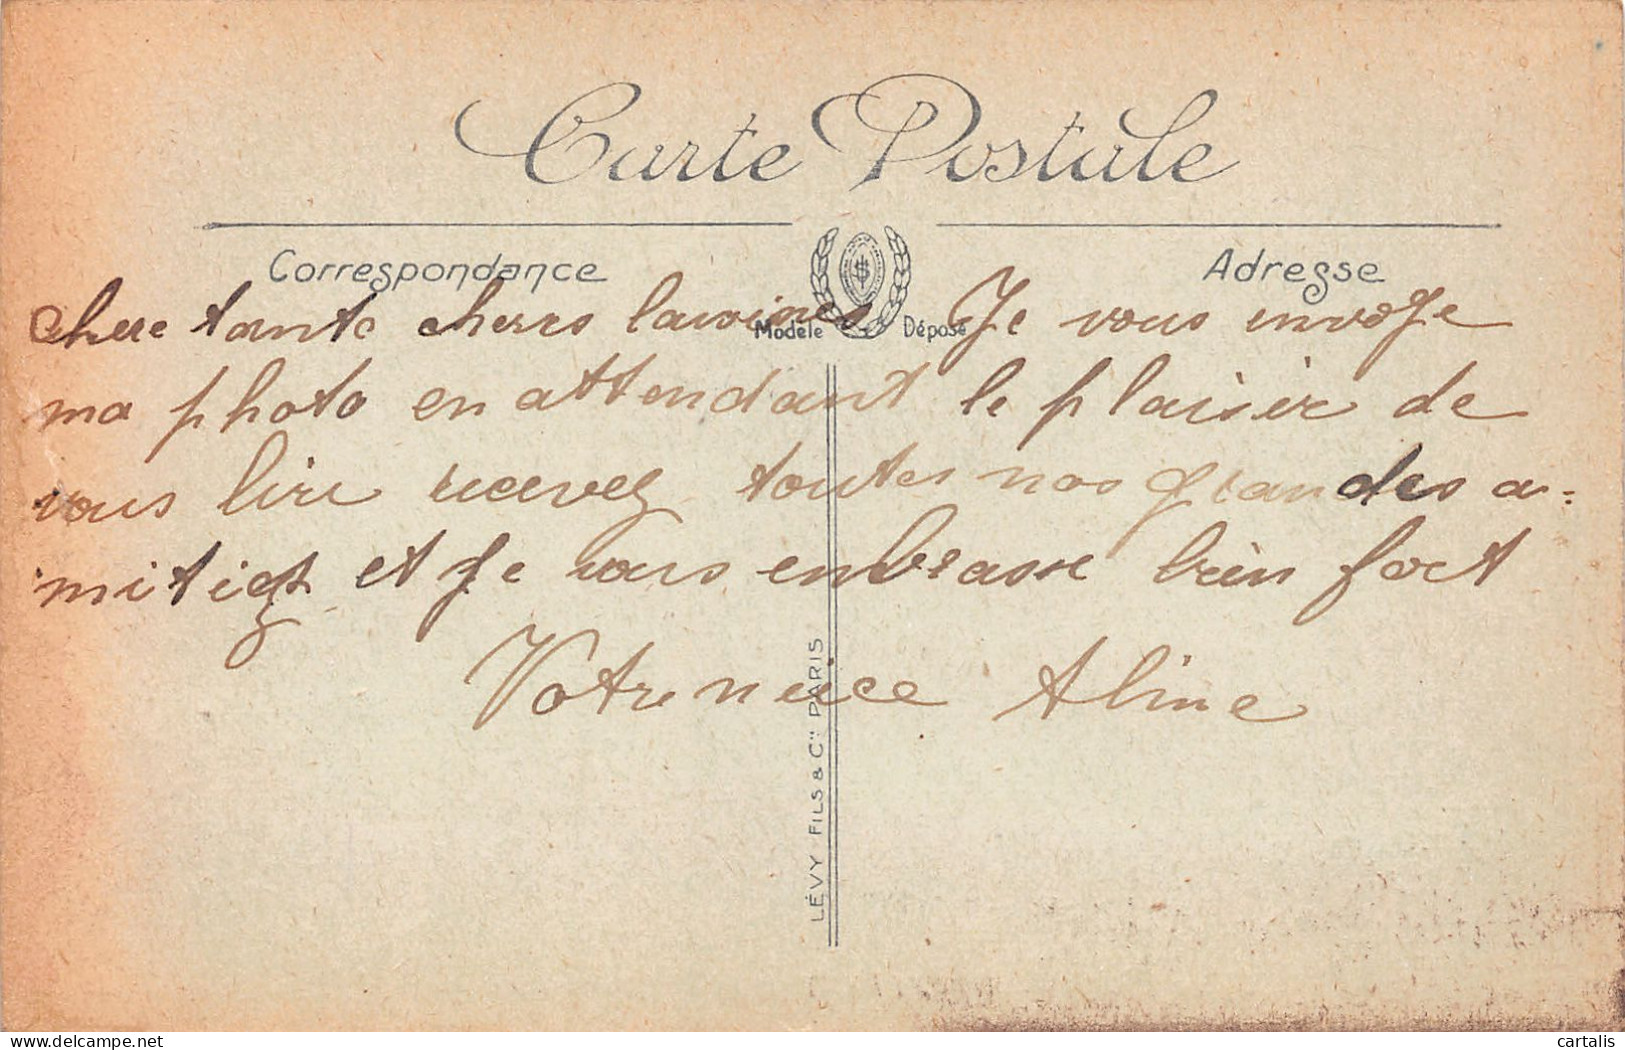 Carte Postale
Correspondance
Adresse
Modèle Déposé
chere tante cheres Cousines Je vous envoje
ma photo en attendant le plaisir de
vous lire recevez toutes nos grandes a-
mitiez et Je vous enbrasse bien fort
Votre niece Aline
LÉVY FILS & Cie PARIS
delcampe.net
cartalis